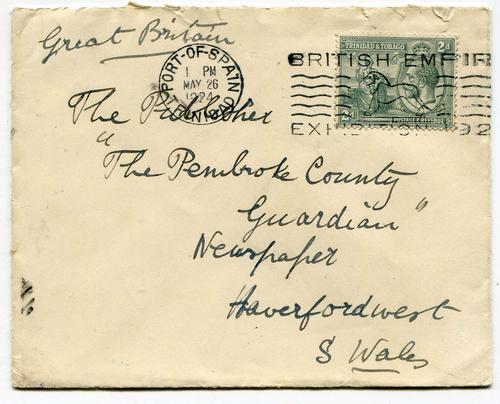 Great Britain
PORT-OF-SPAIN
1 PM
MAY 26
1924
TRINIDAD
TRINIDAD & TOBAGO 2d
BRITISH EMPIR
2d POSTAGE & REVENUE
EXHIBITION 192
The Publisher
"The Pembroke County
Guardian"
Newspaper
Haverfordwest
S Wales